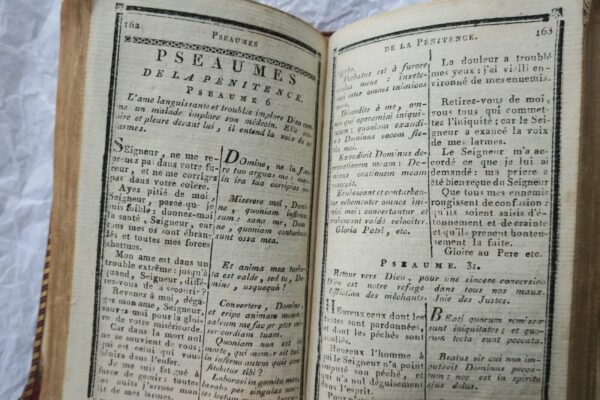 162
PSEAUMES
PSEAUMES
DE LA PÉNITENCE.
PSEAUME 6
L'ame languissante et troublée implore Dieu comme
ne un malade implore son médecin. Elle
oire et pleure devant lui, il entend la voix de
armes.
SEigneur, ne me re-
prenez pas dans votre fu-
reur, et ne me corrigez
pas dans votre colère.
Ayez pitié de moi,
Seigneur, parce que
suis foible: donnez-moi
la santé, Seigneur, car
tous mes os sont ébran-
lés et toutes mes forces
abattues.
Mon ame est dans un
trouble extrême: jusqu'à
quand, Seigneur, diffé-
rez-vous de
Revenez à moi, déga-
gez mon ame, Seigneur,
sauvez moi pour la gloi-
re de votre miséricorde.
Car dans la mort nul
ne se souvient de vous,
et qui est celui qui vous
bénira dans l'enfer.
Je me suis fatigué à
force de gémir: toutes
les nuits j'arrose mon
lit de mes larmes.
DOmine, ne in furo-
re tuo arguas me: neque
in ira tua corripias me.
Miserere mei, Domi-
ne, quoniam infirmus
sum: sana me, Domi-
ne, quoniam conturbata
sunt ossa mea.
Et anima mea turba-
ta est valde, sed tu, Do-
mine, usquequò?
Convertere, Domine,
et eripe animam meam:
salvum me fac propter mi-
sericordiam tuam.
Quoniam non est in
morte, qui memor sit tui:
in inferno autem quis con-
fitebitur tibi?
Laboravi in gemitu
lavabo per singulas noc-
DE LA PÉNITENCE.
163
Turbatus est à furore
oculus meus: invete-
ravi inter omnes inimicos
Discedite à me, om-
nes qui operamini iniqui-
tatem; quoniam exaudi-
vit Dominus vocem fle-
tûs mei.
Exaudivit Dominus de-
precationem meam: Do-
minus orationem meam
suscepit.
Erubescant et conturben-
tur vehementer omnes ini-
mici mei: convertantur et
erubescant valdè velociter.
Gloria Patri, etc.
La douleur a troublé
mes yeux: j'ai vieilli en-
vironné de mes ennemis.
Retirez-vous de moi,
vous tous qui commet-
tez l'iniquité; car le Sei-
gneur a exaucé la voix
de mes larmes.
Le Seigneur m'a ac-
cordé ce que je lui ai
demandé: ma priere a
été bien reçue du Seigneur
Que tous mes ennemis
rougissent de confusion:
qu'ils soient saisis d'é-
tonnement et de crainte
et qu'ils prennent honteu-
sement la fuite.
Gloire au Pere etc.
PSEAUME. 31.
Retour vers Dieu, pour une sincere conversion
Dieu est notre refuge dans tous nos maux.
Affliction des méchants. Joie des Justes.
HEureux ceux dont les
fautes sont pardonnées,
et dont les péchés sont
Heureux l'homme à
qui le Seigneur n'a point
imputé son péché, et
qui n'a nul déguisement
dans l'esprit.
BEati quorum remissæ
sunt iniquitates; et quo-
rum tecta sunt peccata.
Beatus vir cui non im-
putavit Dominus pecca-
tum: nec est in spiritu
ejus dolus.